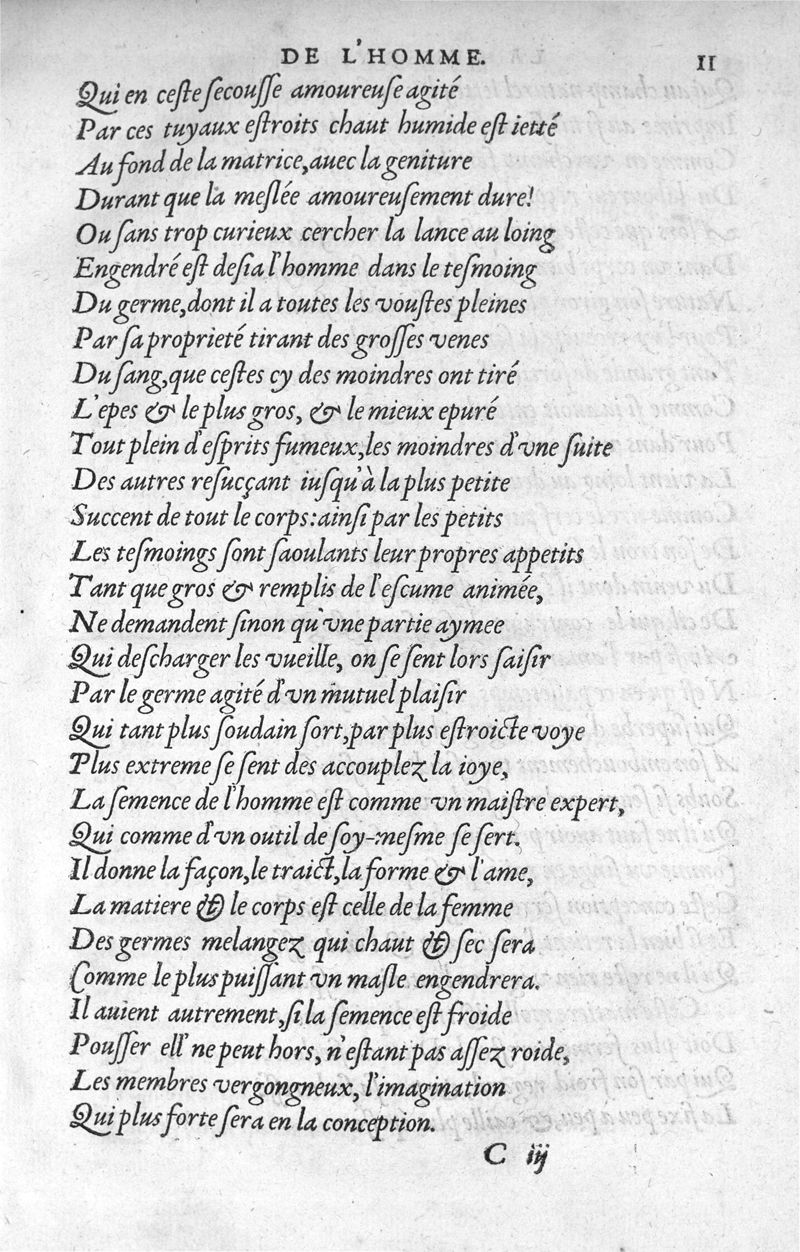 DE L'HOMME. 11
Qui en ceſte ſecouſſe amoureuſe agité
Par ces tuyaux eſtroits chaut humide eſt ietté
Au fond de la matrice, auec la geniture
Durant que la meſlée amoureuſement dure!
Ou ſans trop curieux cercher la lance au loing
Engendré eſt deſia l'homme dans le teſmoing
Du germe, dont il a toutes les vouſtes pleines
Par ſa proprieté tirant des groſſes venes
Du ſang, que ceſtes cy des moindres ont tiré
L'epes & le plus gros, & le mieux epuré
Tout plein d'eſprits fumeux, les moindres d'vne ſuite
Des autres reſucçant iuſqu'à la plus petite
Succent de tout le corps: ainſi par les petits
Les teſmoings ſont ſaoulants leur propres appetits
Tant que gros & remplis de l'eſcume animée,
Ne demandent ſinon qu'vne partie aymee
Qui deſcharger les vueille, on ſe ſent lors ſaiſir
Par le germe agité d'vn mutuel plaiſir
Qui tant plus ſoudain ſort, par plus eſtroicte voye
Plus extreme ſe ſent des accouplez la ioye,
La ſemence de l'homme eſt comme vn maiſtre expert,
Qui comme d'vn outil de ſoy-meſme ſe ſert.
Il donne la façon, le traict, la forme & l'ame,
La matiere & le corps eſt celle de la femme
Des germes melangez qui chaut & ſec ſera
Comme le plus puiſſant vn maſle engendrera.
Il auient autrement, ſi la ſemence eſt froide
Pouſſer ell' ne peut hors, n'eſtant pas aſſez roide,
Les membres vergongneux, l'imagination
Qui plus forte ſera en la conception.
C iij